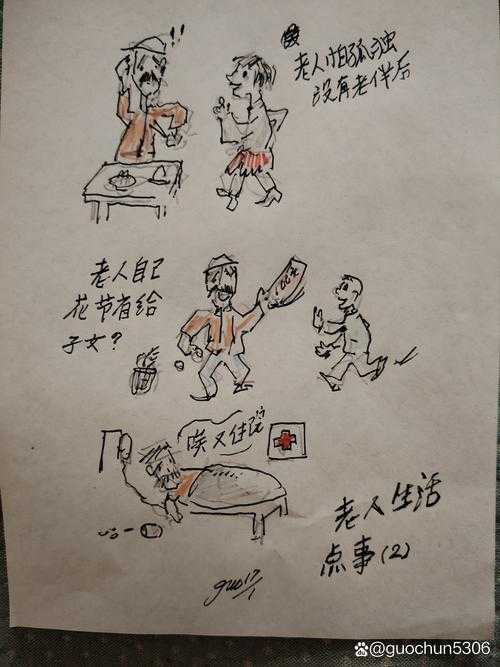 !!
老人怕孤独
没有老伴后
老人自己
花节省给
子女?
100元
唉又住院
老人生活
点事(2)
guo 17/1
@guochun5306